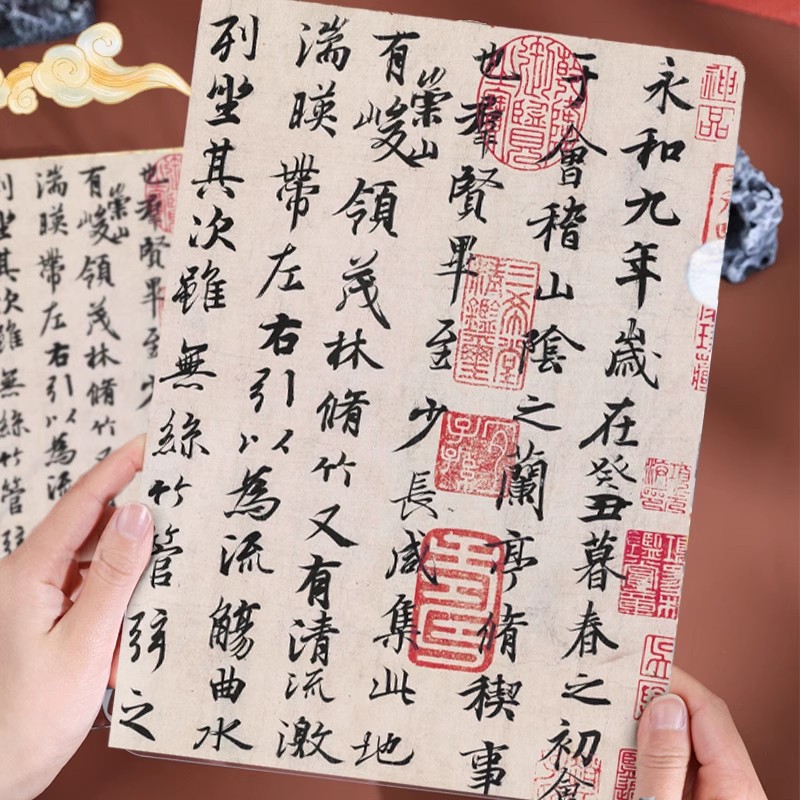 神品
永和九年歲在癸丑暮春之初會
于會稽山陰之蘭亭脩稧事
也羣賢畢至少長咸集此地
有崇山峻領茂林脩竹又有清流激
湍暎帶左右引以為流觴曲水
列坐其次雖無絲竹管弦之
三希堂精鑑璽
宜子孫
也羣賢畢至少
有崇山峻領茂林脩竹又
湍暎帶左右引以為流
列坐其次雖無絲竹管弦